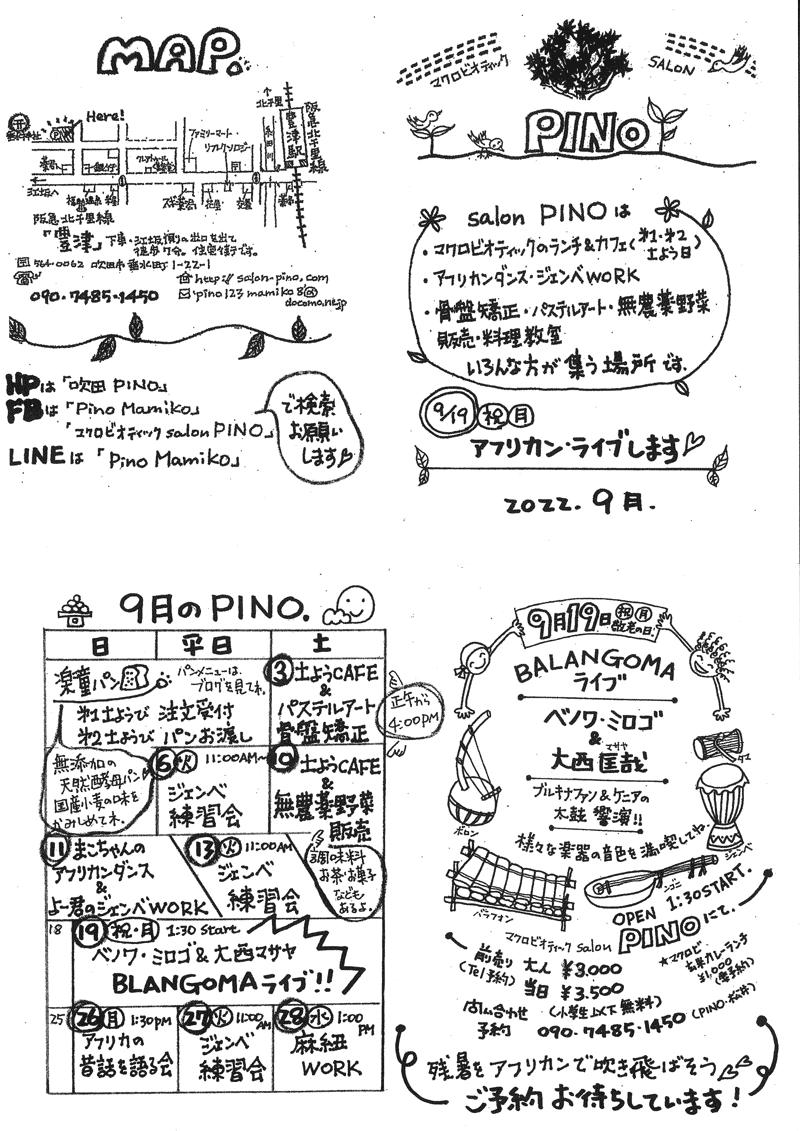 MAP.
Here!
北千里
阪急北千里線
豊津駅
ファミリーマート・
江坂へ
阪急北千里線
「豊津」下車・江坂側の出口を出て
徒歩7分。住宅街です。
〒564-0062 吹田市垂水町1-22-1
http://salon-pino.com
090-7485-1450
pino123mamiko8@
docomo.ne.jp
HPは「吹田PINO」
FBは「Pino Mamiko」
「マクロビオティック salon PINO」
LINEは「Pino Mamiko」
で検索
お願い
します
マクロビオティック
SALON
PINO
salon PINOは
・マクロビオティックのランチ&カフェ(第1・第2土よう日)
・アフリカンダンス・ジェンベWORK
・骨盤矯正・パステルアート・無農薬野菜
販売・料理教室
いろんな方が集う場所です。
9/19 祝 月
アフリカン・ライブします
2022. 9月.
9月のPINO.
日 平日 土
楽童パン
パンメニューは、
ブログを見てね。
第1土ようび 注文受付
第2土ようび パンお渡し
無添加の
天然酵母パン
国産小麦の味を
かみしめてネ。
3 土ようCAFE
&
パステルアート
骨盤矯正
正午から
4:00PM
6 火 11:00AM~
ジェンベ
練習会
10 土ようCAFE
&
無農薬野菜
販売
調味料
お茶・お菓子
なども
あるよ。
11 まこちゃんの
アフリカダンス
&
よー君のジェンベWORK
13 火 11:00AM
ジェンベ
練習会
18
19 祝・月 1:30 Start
ベノワ・ミロゴ&大西マサヤ
BLANGOMAライブ!!
25
26 月 1:30PM
アフリカの
昔話を語る会
27 火 11:00AM
ジェンベ
練習会
28 水 1:00PM
麻紐
WORK
9月19日 祝 月
敬老の日.
BALANGOMA
ライブ
ベノワ・ミロゴ
&
マサヤ
大西匡哉
ブルキナファソ&ケニアの
太鼓 響演!!
様々な楽器の音色を満喫してね。
ボロン
タマ
ジェンベ
バラフォン
ンゴニ
OPEN 1:30 START.
マクロビオティック salon PINOにて。
前売り 大人 ¥3,000
(Tel予約) 当日 ¥3,500
(小学生以下無料)
★マクロビ
玄米カレーランチ
¥1,000
(要予約)
問い合わせ
予約 090-7485-1450 (PINO・松井)
残暑をアフリカンで吹き飛ばそう
ご予約お待ちしています!